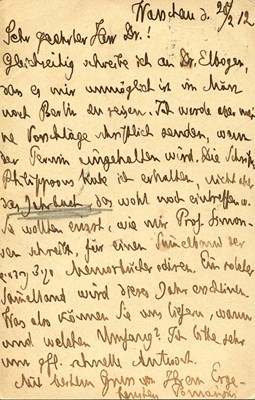 Warschau d. 26/2 12
Sehr geehrter Herr Dr.!
Gleichzeitig schreibe ich an Dr. Elbogen,
das es mir unmöglich ist im März
nach Berlin zu reisen. Ich werde aber mei-
ne Vorschläge schriftlich senden, wenn
der Termin eingehalten wird. Die Schrift
Philippsons habe ich erhalten, nicht aber
das Jahrbuch, das wohl noch eintreffen w.
Sie wollten einst, wie mir Prof. Simon-
sen schreibt, für einen Sammelband der
Memorbücher edieren. Ein solcher
Sammelband wird dieses Jahr erscheinen.
Was also können Sie uns liefern, wann
und welchen Umfang? Ich bitte sehr
um gfl. schnelle Antwort.
Mit bestem Gruss von Ihrem Erge-
bensten Poznański